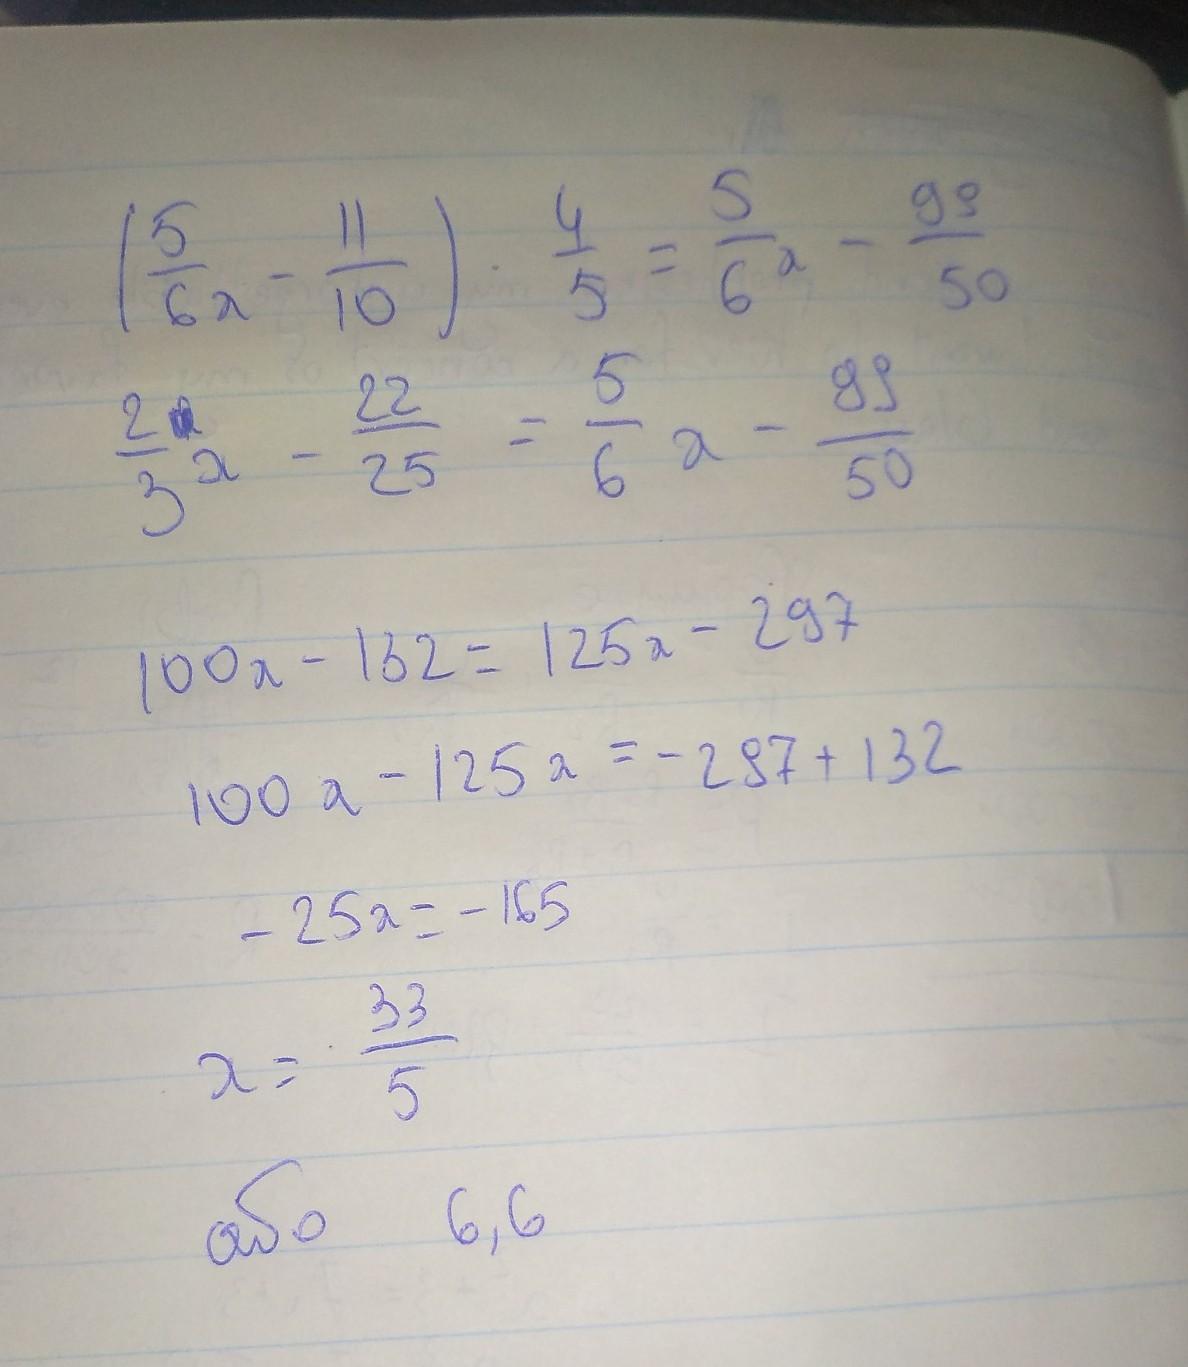 (5/6 x - 11/10) · 4/5 = 5/6 x - 99/50
2/3 x - 22/25 = 5/6 x - 99/50
100x - 132 = 125x - 297
100x - 125x = -297 + 132
-25x = -165
x = 33/5
або 6,6